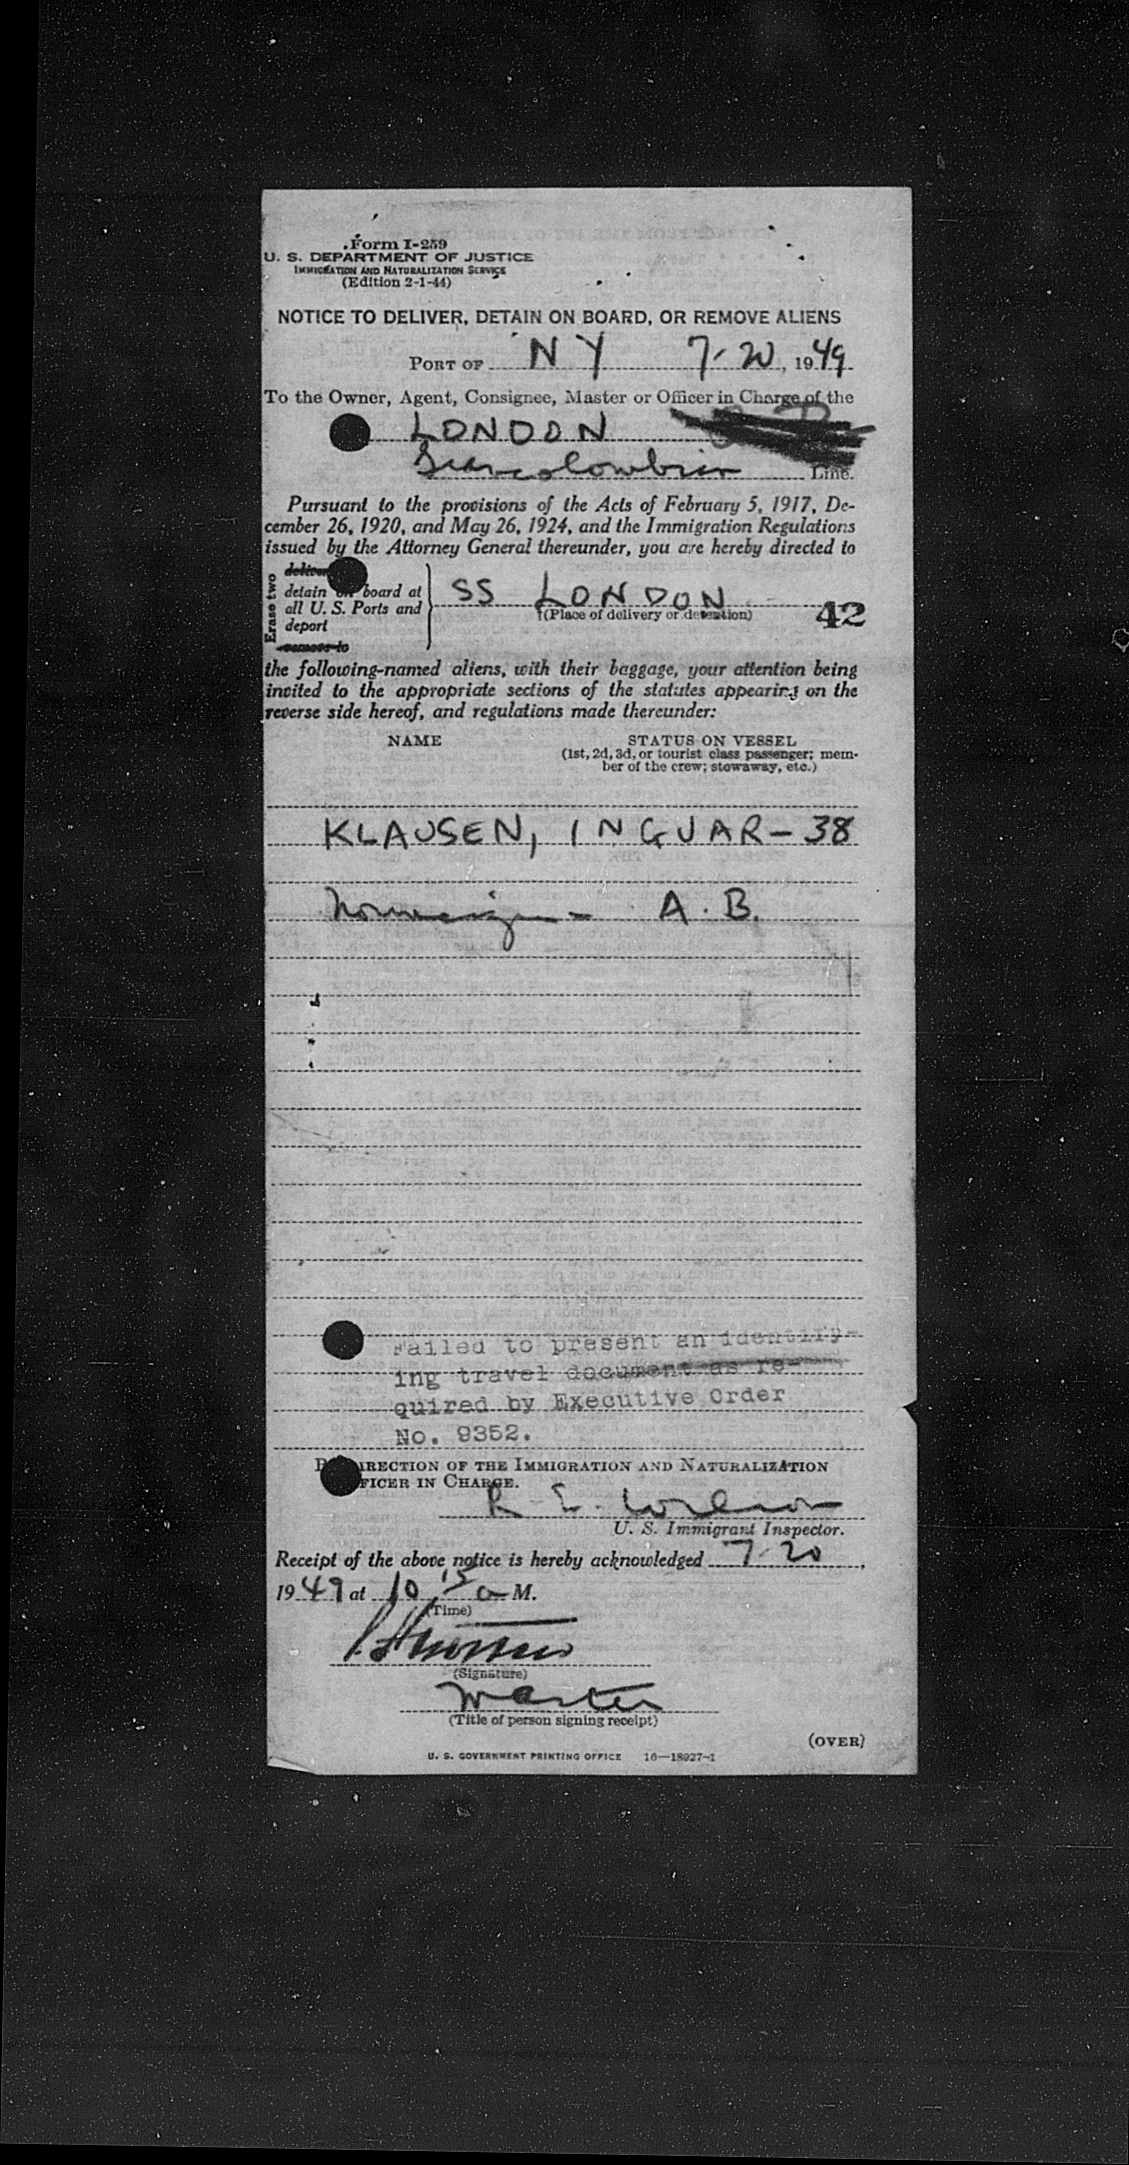 Form I-259
U. S. DEPARTMENT OF JUSTICE
IMMIGRATION AND NATURALIZATION SERVICE
(Edition 2-1-44)
NOTICE TO DELIVER, DETAIN ON BOARD, OR REMOVE ALIENS
PORT OF NY 7-20, 1949
To the Owner, Agent, Consignee, Master or Officer in Charge of the
LONDON
Line.
Pursuant to the provisions of the Acts of February 5, 1917, De-
cember 26, 1920, and May 26, 1924, and the Immigration Regulations
issued by the Attorney General thereunder, you are hereby directed to
Erase two
deliver
detain on board at
all U. S. Ports and
deport
remove to
SS LONDON
(Place of delivery or detention)
42
the following-named aliens, with their baggage, your attention being
invited to the appropriate sections of the statutes appearing on the
reverse side hereof, and regulations made thereunder:
NAME STATUS ON VESSEL
(1st, 2d, 3d, or tourist class passenger; mem-
ber of the crew; stowaway, etc.)
KLAUSEN, INGVAR - 38
Norwegian - A. B.
Failed to present an identify-
ing travel document as re-
quired by Executive Order
No. 9352.
DIRECTION OF THE IMMIGRATION AND NATURALIZATION
OFFICER IN CHARGE.
R. E. Wilson
U. S. Immigrant Inspector.
Receipt of the above notice is hereby acknowledged 7-20,
1949 at 10 15 a M.
(Time)
(Signature)
Master
(Title of person signing receipt)
(OVER)
U. S. GOVERNMENT PRINTING OFFICE 16—18927-1